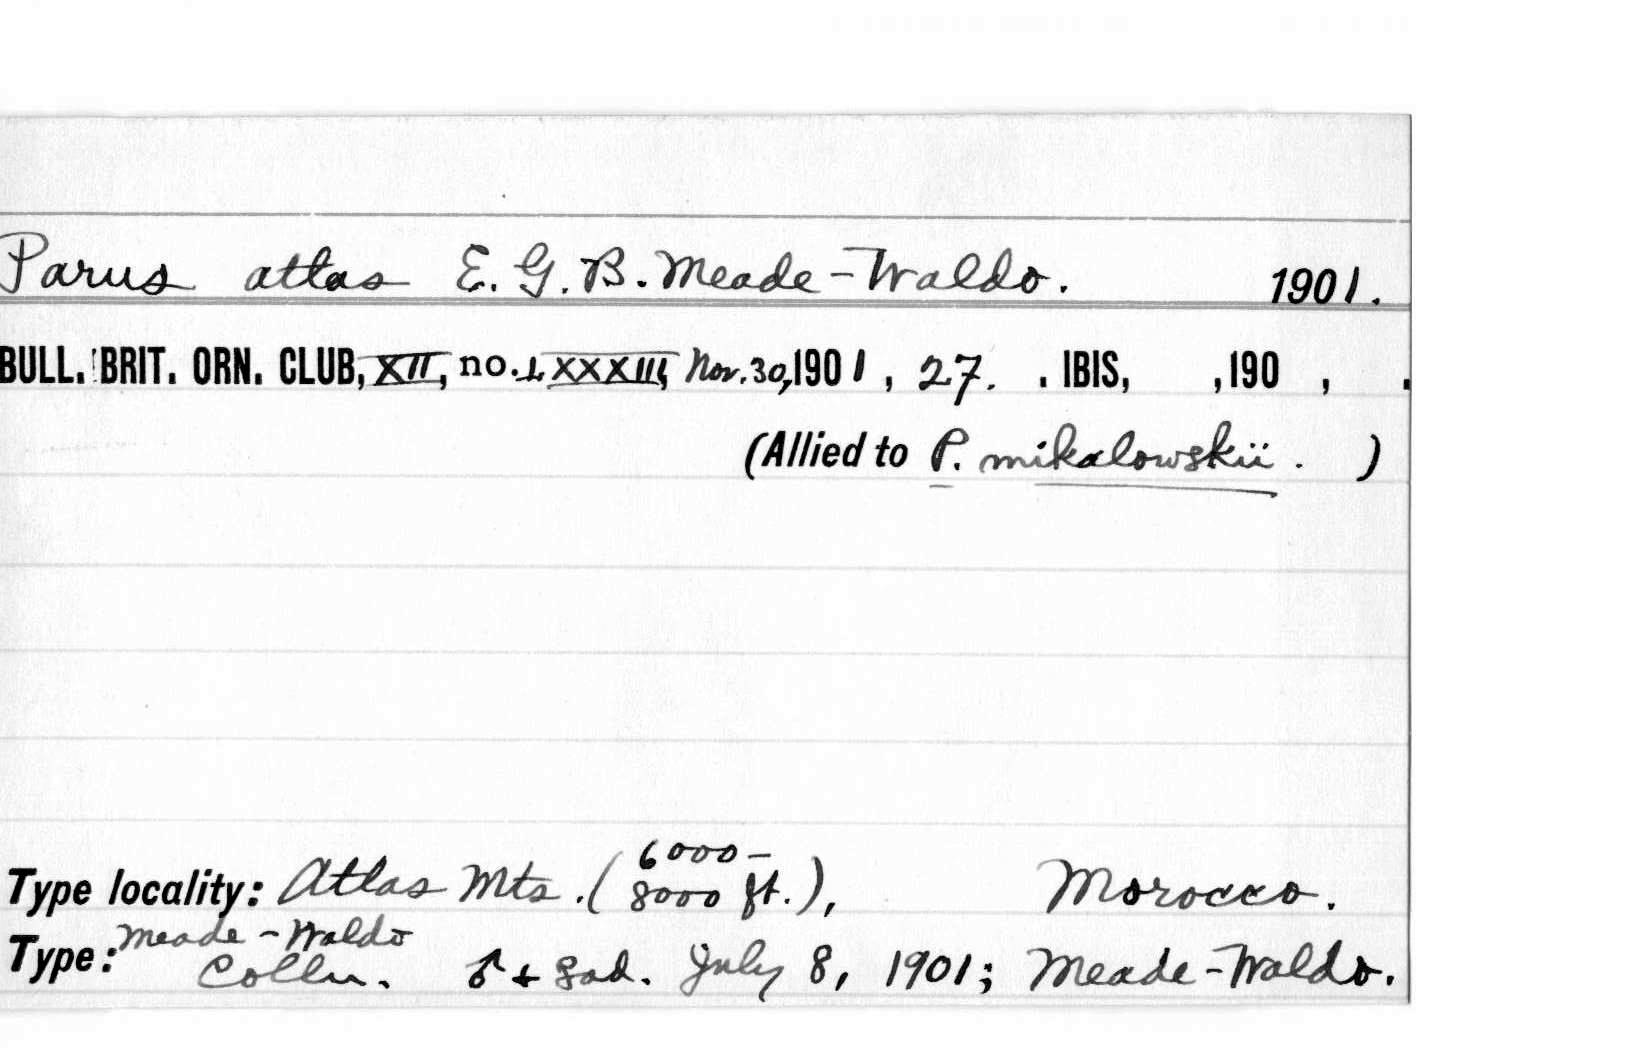 Parus atlas E. G. B. Meade-Waldo. 1901.
BULL. BRIT. ORN. CLUB, XII, no. LXXXIII, Nov. 30, 1901, 27. . IBIS, , 190 , .
(Allied to P. mikalowskii. )
Type locality: Atlas Mts. (6000-8000 ft.), Morocco.
Type: Meade-Waldo Colln. ♂ + ♀ ad. July 8, 1901; Meade-Waldo.